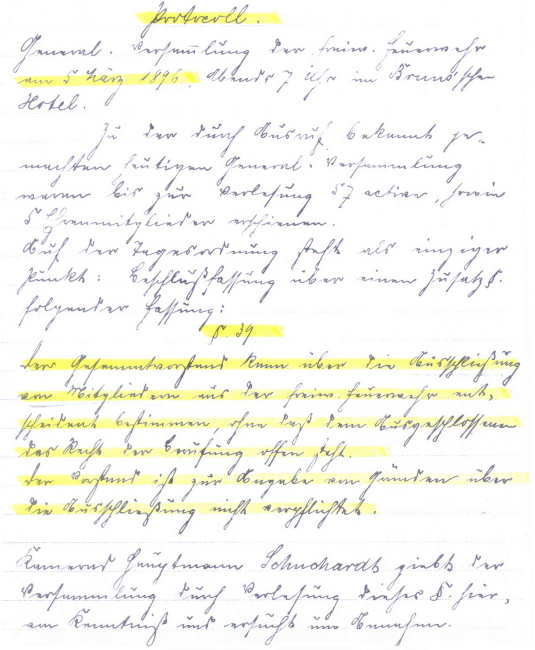 Protocoll.
General. Versam̅lung der freiw. Feuerwehr
am 5 März 1896. Abends 7 Uhr im Bruns'schen
Hotel.
Zu der durch Ausruf bekannt ge-
machten heutigen General. Versammlung
waren bis zur Verlesung 57 active, sowie
5 Ehrenmitglieder erschienen.
Auf der Tagesordnung steht als einziger
Punkt: Beschlußfassung über einen Zusatz §.
folgender Fassung:
§. 39
Der Gesammtvorstand kann über die Ausschließung
von Mitgliedern aus der freiw. Feuerwehr ent-
scheident bestimmen, ohne daß dem Ausgeschlossenen
das Recht der Berufung offen steht.
Der Vorstand ist zur Angabe von Gründen über
die Ausschließung nicht verpflichtet.
Kamerad Hauptmann Schuchardt giebt der
Versammlung durch Verlesung dieses §. hier-
von Kenntniß und ersucht um Annahme.